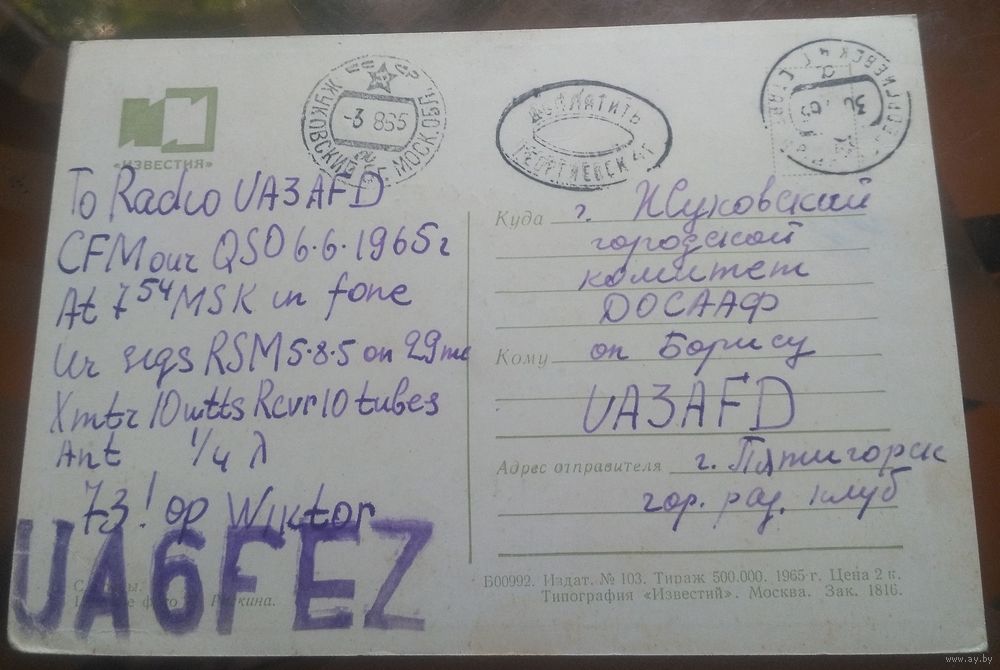 «ИЗВЕСТИЯ»
ЖУКОВСКИЙ
МОСК. ОБЛ.
-3 865
ДОПЛАТИТЬ
ГЕОРГИЕВСК
To Radio UA3AFD
CFM our QSO 6.6.1965 г
At 7 54 MSK in fone
Ur sigs RSM 5.8.5 on 29 mc
Xmtr 10 wtts Rcvr 10 tubes
Ant 1/4 λ
73! op Wiktor
UA6FEZ
Куда г. Жуковский
городской
комитет
ДОСААФ
Кому оп Борису
UA3AFD
Адрес отправителя г. Пятигорск
гор. рад. клуб
Б00992. Издат. № 103. Тираж 500.000. 1965 г. Цена 2 к.
Типография «Известий». Москва. Зак. 1816.
www.ay.by